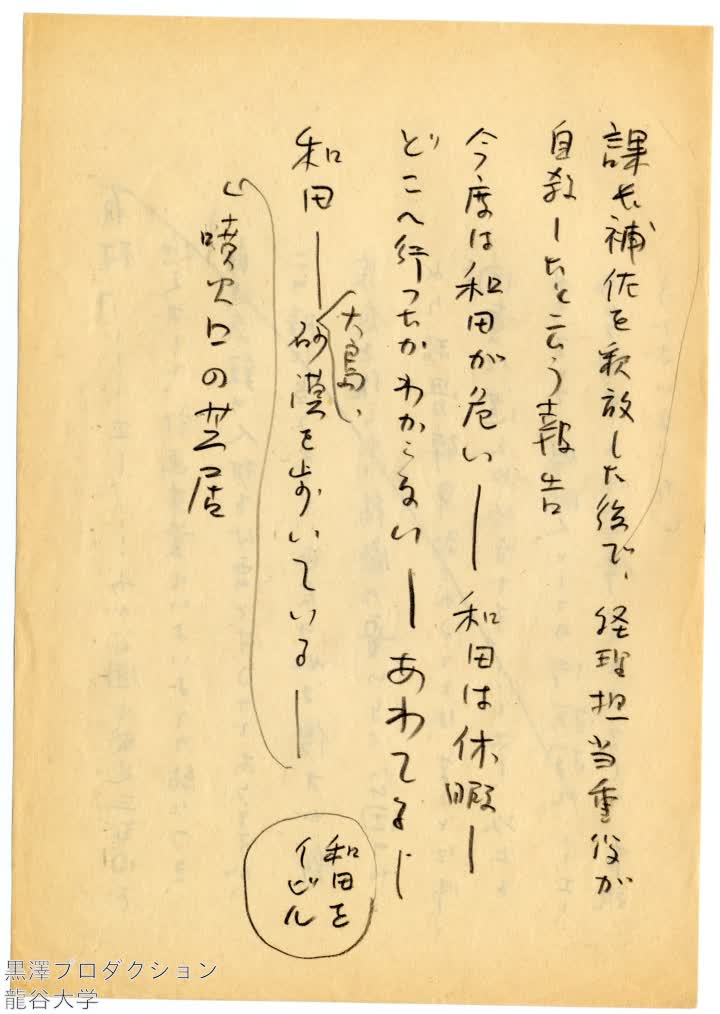 課長補佐を釈放した後で、経理担当重役が
自殺したと云う報告
今度は和田が危い―和田は休暇―
どこへ行つたかわからない―あわてる―
大島、
和田―砂漠を歩いている―
噴火口の芝居
和田を
イビル
黒澤プロダクション
龍谷大学